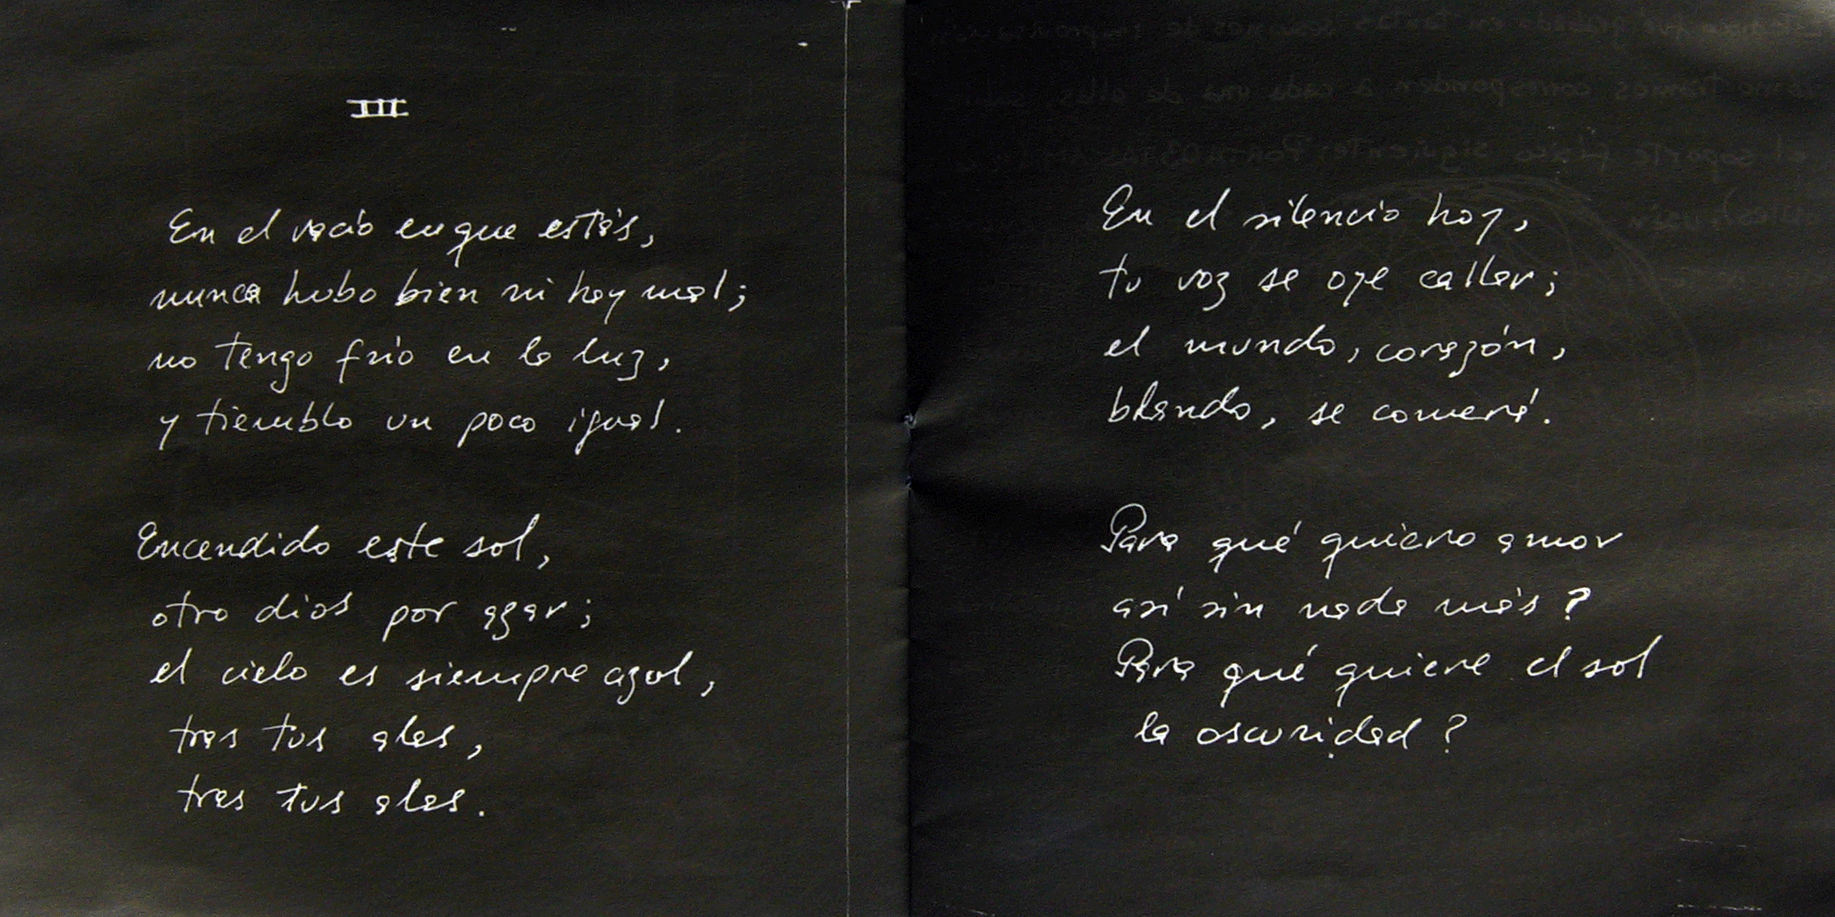 III
En el vacío en que estás,
nunca hubo bien ni hoy mal;
no tengo frío en la luz,
y tiemblo un poco igual.
Encendido este sol,
otro dios por azar;
el cielo es siempre azul,
tras tus alas,
tras tus alas.
En el silencio hoy,
tu voz se oye callar;
el mundo, corazón,
blando, se comerá.
Para qué quiero amor
así sin nada más?
Para qué quiere el sol
la oscuridad?